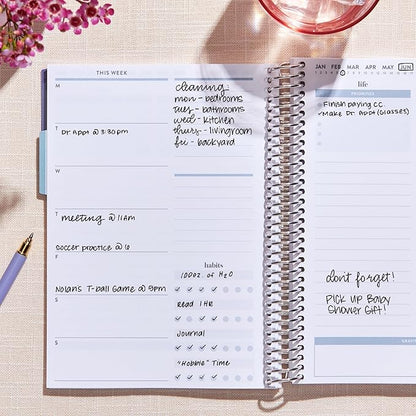 THIS WEEK
M
T
Dr Appt @ 3:30pm
W
T
meeting @ 11AM
Soccer practice @ 6
F
Nolan's T-ball Game @ 9pm
S
S
cleaning
mon - bedrooms
tues - bathrooms
wed - kitchen
thurs - livingroom
fri - backyard
habits
100oz. of H2O
Read 1 HR
Journal
"Hobbie" Time
JAN FEB MAR APR MAY JUN
life
PRIORITIES
Finish paying cc.
Make Dr Appt (Glasses)
don't forget!
PICK UP Baby
Shower Gift!